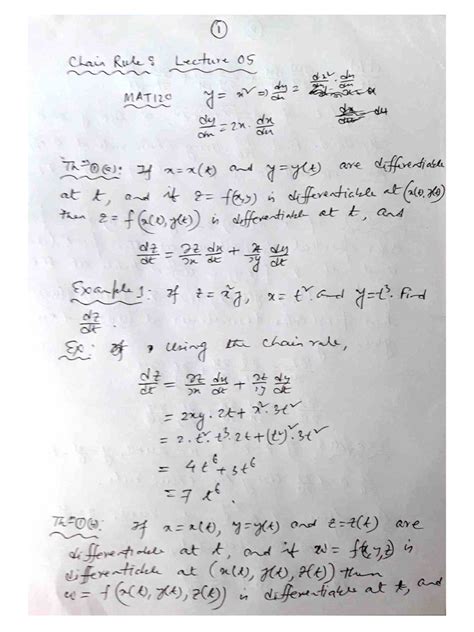 ①
Chain Rule : Lecture 05
MAT120 y = x² ⇒ dy/du = dx²/dx · dx/du
dy/du = 2x · dx/du
Th^m ①(a): If x = x(t) and y = y(t) are differentiable
at t, and if z = f(x,y) is differentiable at (x(t), y(t))
then z = f(x(t), y(t)) is differentiable at t, and
dz/dt = ∂z/∂x dx/dt + ∂z/∂y dy/dt
Example 1: If z = x²y, x = t² and y = t³. Find
dz/dt.
Using the chain rule,
dz/dt = ∂z/∂x dx/dt + ∂z/∂y dy/dt
= 2xy · 2t + x² · 3t²
= 2 · t² · t³ · 2t + (t²)² · 3t²
= 4t⁶ + 3t⁶
= 7 t⁶.
If x = x(t), y = y(t) and z = z(t) are
differentiable at t, and if w = f(x,y,z) is
differentiable at (x(t), y(t), z(t)) then
w = f(x(t), y(t), z(t)) is differentiable at t, and